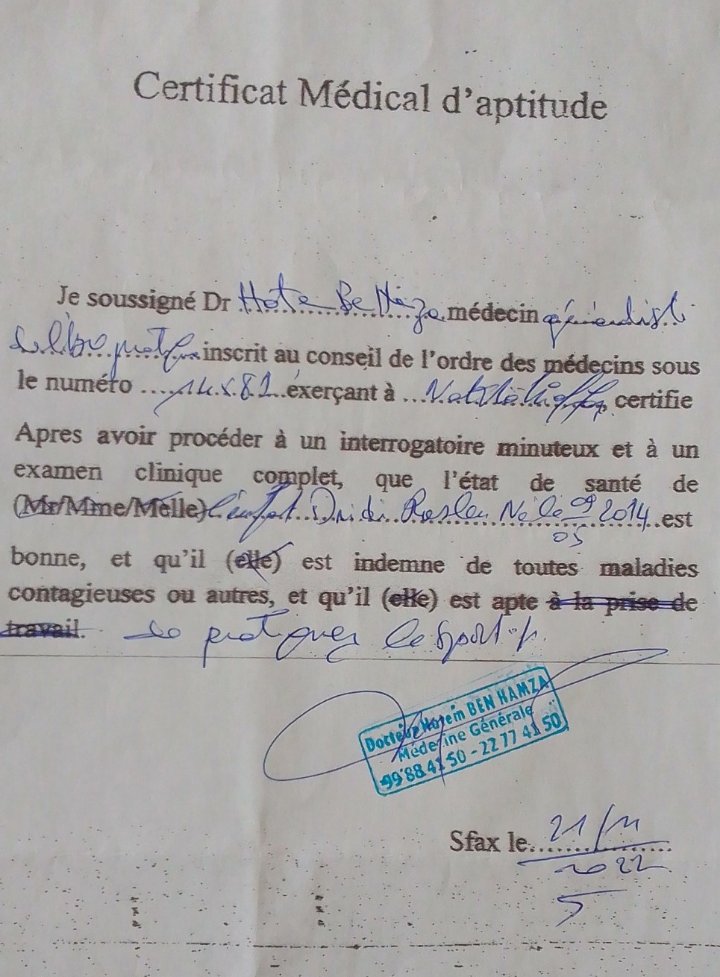 Certificat Médical d'aptitude
Je soussigné Dr médecin généraliste
de libre pratique inscrit au conseil de l'ordre des médecins sous
le numéro exerçant à certifie
Apres avoir procéder à un interrogatoire minuteux et à un
examen clinique complet, que l'état de santé de
(Mr/Mme/Melle) l'enfant Dridi Né le 09 2014 est
05
bonne, et qu'il (elle) est indemne de toutes maladies
contagieuses ou autres, et qu'il (elle) est apte à la prise de
travail. de pratiquer le sport
Docteur Hatem BEN HAMZA
Médecine Générale
99 88 41 50 - 22 77 41 50
Sfax le 21/11
2022